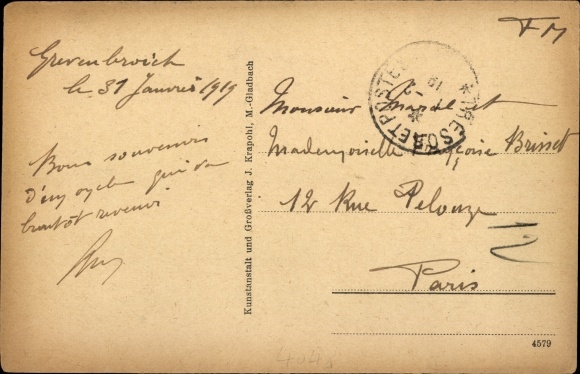 Grevenbroich
le 31 Janvier 1919
Bons souvenirs
d'un oncle qui va
bientôt revenir
Kunstanstalt und Großverlag J. Krapohl, M.-Gladbach
FM
TRESOR ET POSTES
Monsieur Marcel et
Mademoiselle Brisset
12 Rue Pelouze
Paris
12
4579